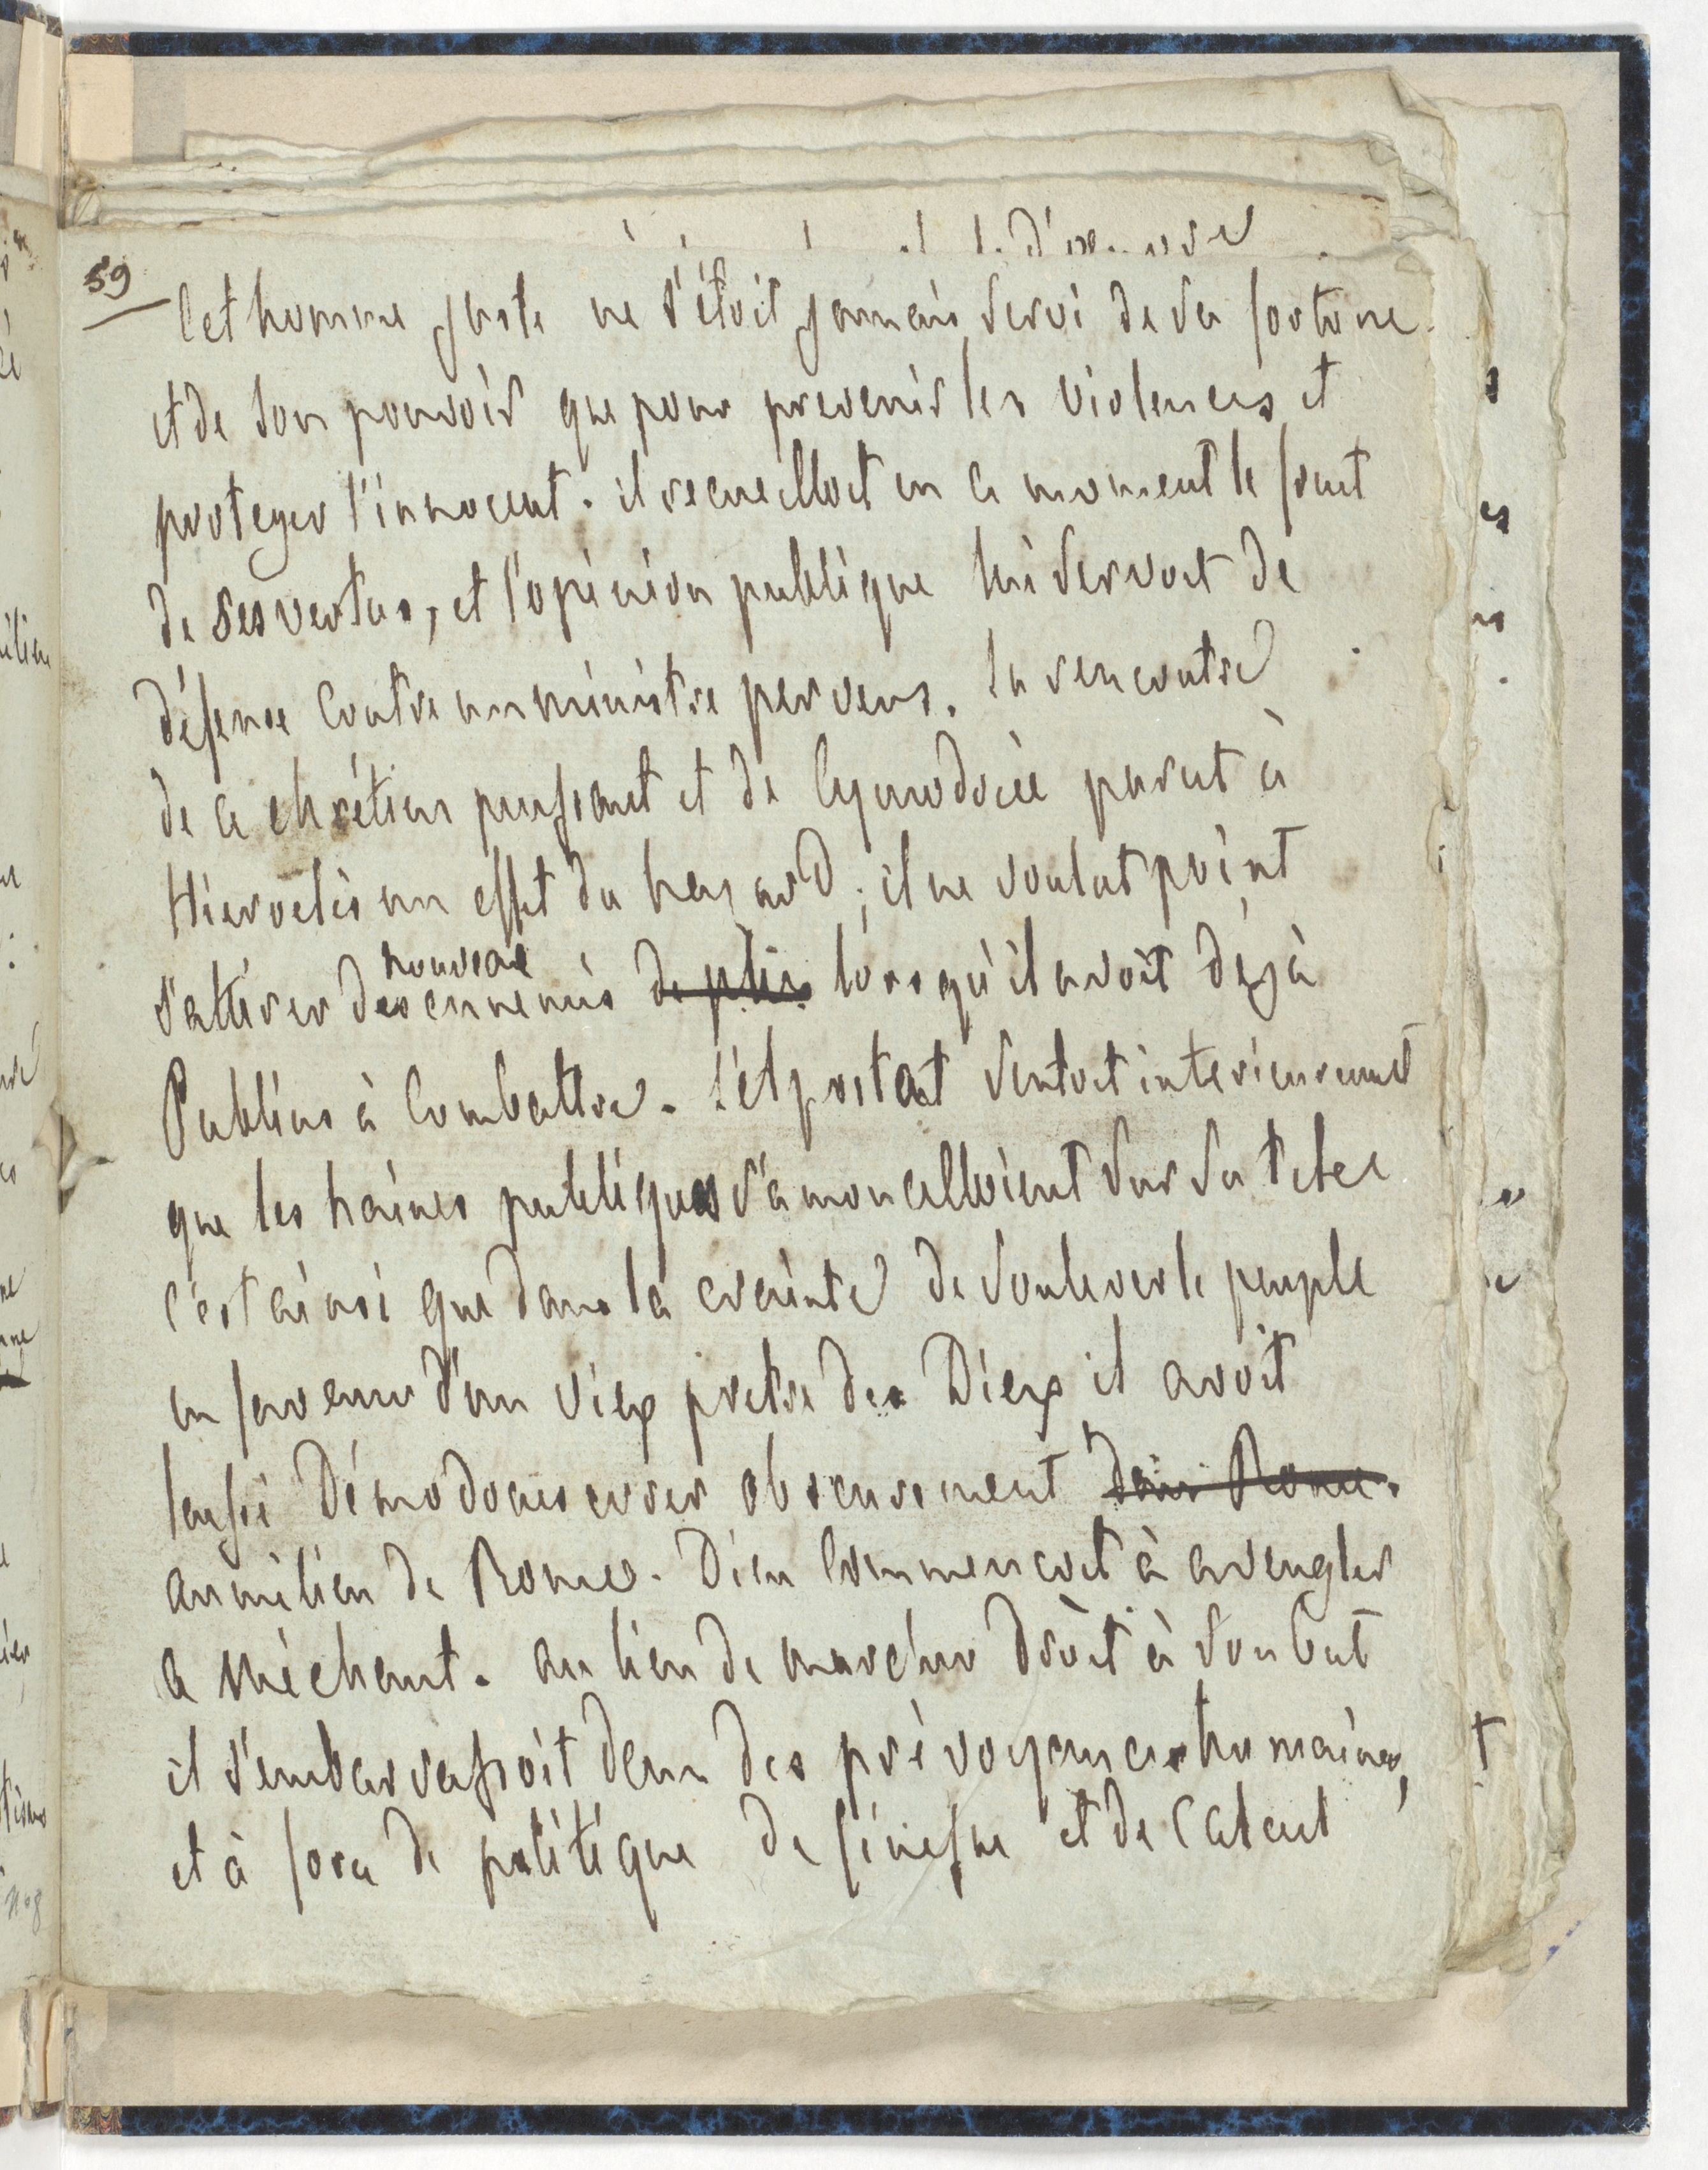 59
Cet homme juste ne s'étoit jamais servi de sa fortune
et de son pouvoir que pour prevenir les violences et
proteger l'innocent. il recueilloit en ce moment le fruit
de ses vertus, et l'opinion publique lui servoit de
défense contre un ministre pervers. la rencontre
de ce chrétien puissant et de Cymodocée parut à
Hieroclès un effet du hasard ; il ne voulut point
nouveaux
s'attirer des ennemis de plus lorsqu'il avoit déjà
Publius à combattre. L'apostat sentoit interieurement
que les haines publiques s'amoncelloient sur sa tete
c'est ainsi que dans la crainte de soulever le peuple
en faveur d'un vieux pretre des Dieux il avoit
laissé Démodocus errer obscurement dans Rome.
au milieu de Rome. Dieu commencoit à aveugler
ce méchant. au lieu de marcher droit à son but
il s'embarrassoit dans des prévoyances humaines,
et à force de politique de finesse et de calcul